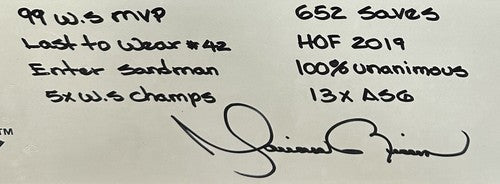 99 W.S MVP
Last to wear #42
Enter Sandman
5x W.S Champs
652 Saves
HOF 2019
100% unanimous
13x ASG
Mariano Rivera
TM